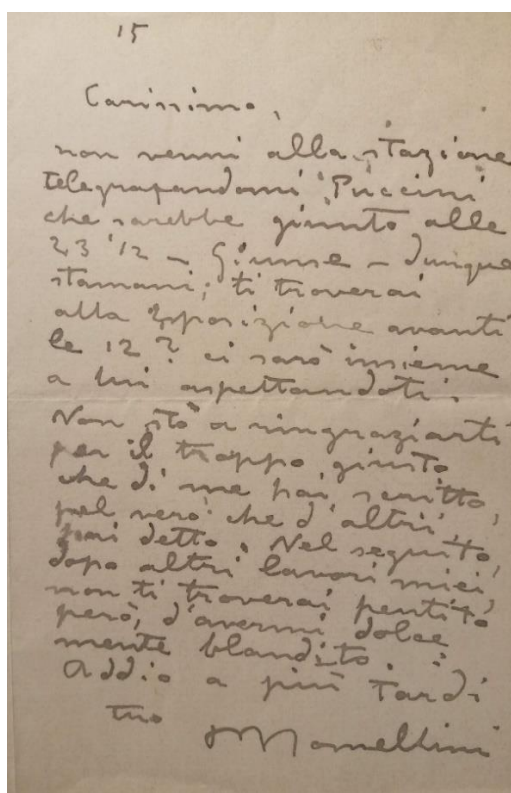 15
Carissimo,
non venni alla stazione
telegrafandomi Puccini
che sarebbe giunto alle
23 1/2 – Giunse – dunque
stamani; ti troverai
alla Esposizione avanti
le 12? ci sarò insieme
a lui aspettandoti.
Non stò a ringraziarti
per il troppo giusto
che di me hai scritto,
pel vero che d'altrii
hai detto. Nel seguito,
dopo altri lavori miei,
non ti troverai pentito
però, d'avermi dolce
mente blandito.
Addio a più tardi
tuo
Nomellini